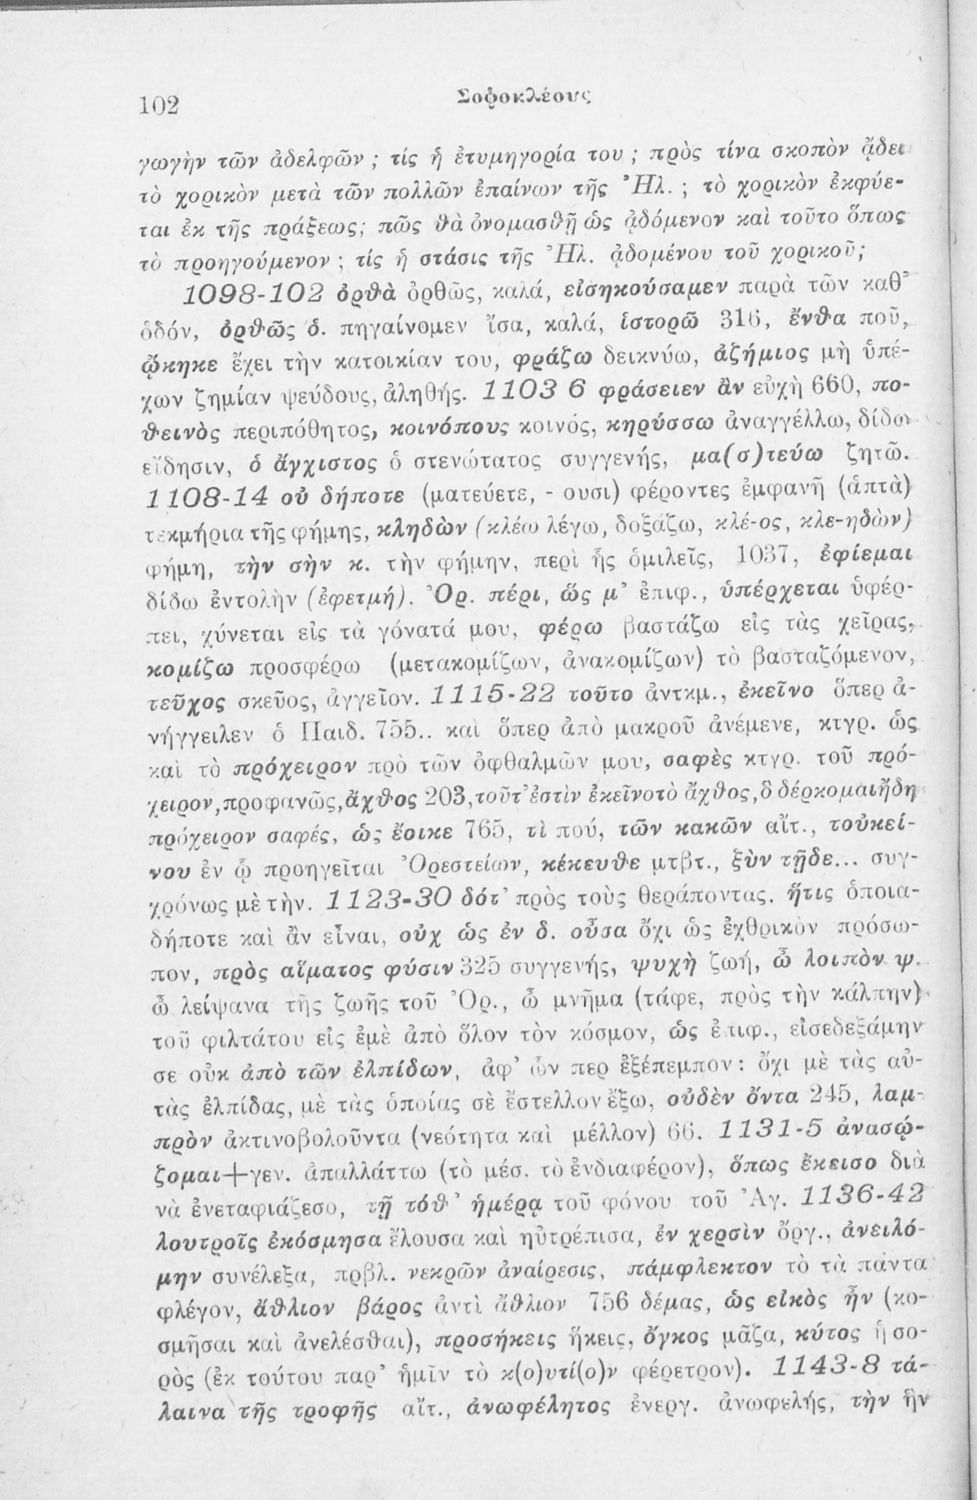 102
Σοφοκλέους
γωγὴν τῶν ἀδελφῶν ; τίς ἡ ἐτυμηγορία του ; πρὸς τίνα σκοπὸν ᾄδει
τὸ χορικὸν μετὰ τῶν πολλῶν ἐπαίνων τῆς Ἠλ. ; τὸ χορικὸν ἐκφύε-
ται ἐκ τῆς πράξεως; πῶς θὰ ὀνομασθῇ ὡς ᾀδόμενον καὶ τοῦτο ὅπως
τὸ προηγούμενον ; τίς ἡ στάσις τῆς Ἠλ. ᾀδομένου τοῦ χορικοῦ;
1098-102 ὀρθὰ ὀρθῶς, καλά, εἰσηκούσαμεν παρὰ τῶν καθ'
ὁδόν, ὀρθῶς ὁ. πηγαίνομεν ἴσα, καλά, ἱστορῶ 316, ἔνθα ποῦ,
ᾤκηκε ἔχει τὴν κατοικίαν του, φράζω δεικνύω, ἀζήμιος μὴ ὑπέ-
χων ζημίαν ψεύδους, ἀληθής. 1103 6 φράσειεν ἂν εὐχὴ 660, πο-
θεινὸς περιπόθητος, κοινόπους κοινός, κηρύσσω ἀναγγέλλω, δίδω
εἴδησιν, ὁ ἄγχιστος ὁ στενώτατος συγγενής, μα(σ)τεύω ζητῶ.
1108-14 οὐ δήποτε (ματεύετε, - ουσι) φέροντες ἐμφανῆ (ἁπτὰ)
τεκμήρια τῆς φήμης, κληδὼν (κλέω λέγω, δοξάζω, κλέ-ος, κλε-ηδὼν)
φήμη, τὴν σὴν κ. τὴν φήμην, περὶ ἧς ὁμιλεῖς, 1037, ἐφίεμαι
δίδω ἐντολὴν (ἐφετμή). Ὀρ. πέρι, ὥς μ' ἐπιφ., ὑπέρχεται ὑφέρ-
πει, χύνεται εἰς τὰ γόνατά μου, φέρω βαστάζω εἰς τὰς χεῖρας,
κομίζω προσφέρω (μετακομίζων, ἀνακομίζων) τὸ βασταζόμενον,
τεῦχος σκεῦος, ἀγγεῖον. 1115-22 τοῦτο ἀντκμ., ἐκεῖνο ὅπερ ἀ-
νήγγειλεν ὁ Παιδ. 755.. καὶ ὅπερ ἀπὸ μακροῦ ἀνέμενε, κτγρ. ὡς
καὶ τὸ πρόχειρον πρὸ τῶν ὀφθαλμῶν μου, σαφὲς κτγρ. τοῦ πρό-
χειρον, προφανῶς, ἄχθος 203, τοῦτ' ἐστὶν ἐκεῖνο τὸ ἄχθος, ὃ δέρκομαι ἤδη
πρόχειρον σαφές, ὡς ἔοικε 765, τὶ πού, τῶν κακῶν αἴτ., τοὐκεί-
νου ἐν ᾧ προηγεῖται Ὀρεστείων, κέκευθε μτβτ., ξὺν τῇδε... συγ-
χρόνως μὲ τὴν. 1123-30 δότ' πρὸς τοὺς θεράποντας, ἥτις ὁποια-
δήποτε καὶ ἂν εἶναι, οὐχ ὡς ἐν δ. οὖσα ὄχι ὡς ἐχθρικὸν πρόσω-
πον, πρὸς αἵματος φύσιν 325 συγγενής, ψυχὴ ζωή, ὦ λοιπὸν ψ.
ὦ λείψανα τῆς ζωῆς τοῦ Ὀρ., ὦ μνῆμα (τάφε, πρὸς τὴν κάλπην)
τοῦ φιλτάτου εἰς ἐμὲ ἀπὸ ὅλον τὸν κόσμον, ὡς ἐπιφ., εἰσεδεξάμην
σε οὐκ ἀπὸ τῶν ἐλπίδων, ἀφ' ὧν περ ἐξέπεμπον : ὄχι μὲ τὰς αὐ-
τὰς ἐλπίδας, μὲ τὰς ὁποίας σὲ ἔστελλον ἔξω, οὐδὲν ὄντα 245, λαμ-
πρὸν ἀκτινοβολοῦντα (νεότητα καὶ μέλλον) 66. 1131-5 ἀνασῴ-
ζομαι+γεν. ἀπαλλάττω (τὸ μέσ. τὸ ἐνδιαφέρον), ὅπως ἔκεισο διὰ
νὰ ἐνεταφιάζεσο, τῇ τόθ' ἡμέρᾳ τοῦ φόνου τοῦ Ἀγ. 1136-42
λουτροῖς ἐκόσμησα ἔλουσα καὶ ηὐτρέπισα, ἐν χερσὶν ὄργ., ἀνειλό-
μην συνέλεξα, πρβλ. νεκρῶν ἀναίρεσις, πάμφλεκτον τὸ τὰ πάντα
φλέγον, ἄθλιον βάρος ἀντὶ ἄθλιον 756 δέμας, ὡς εἰκὸς ἦν (κο-
σμῆσαι καὶ ἀνελέσθαι), προσήκεις ἥκεις, ὄγκος μᾶζα, κύτος ἡ σο-
ρὸς (ἐκ τούτου παρ' ἡμῖν τὸ κ(ο)υτί(ο)ν φέρετρον). 1143-8 τά-
λαινα τῆς τροφῆς αἴτ., ἀνωφέλητος ἐνεργ. ἀνωφελής, τὴν ἣν